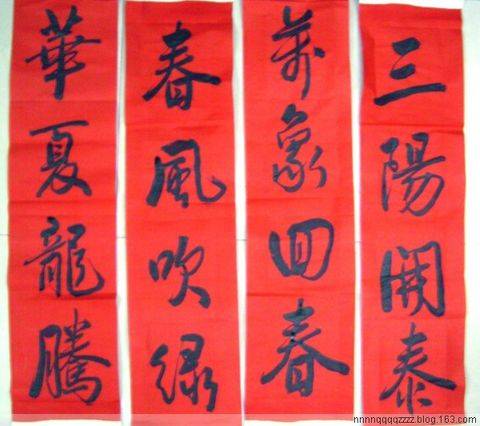 三陽開泰
萬象回春
春風吹绿
華夏龍騰
nnnnqqqqzzzz.blog.163.com